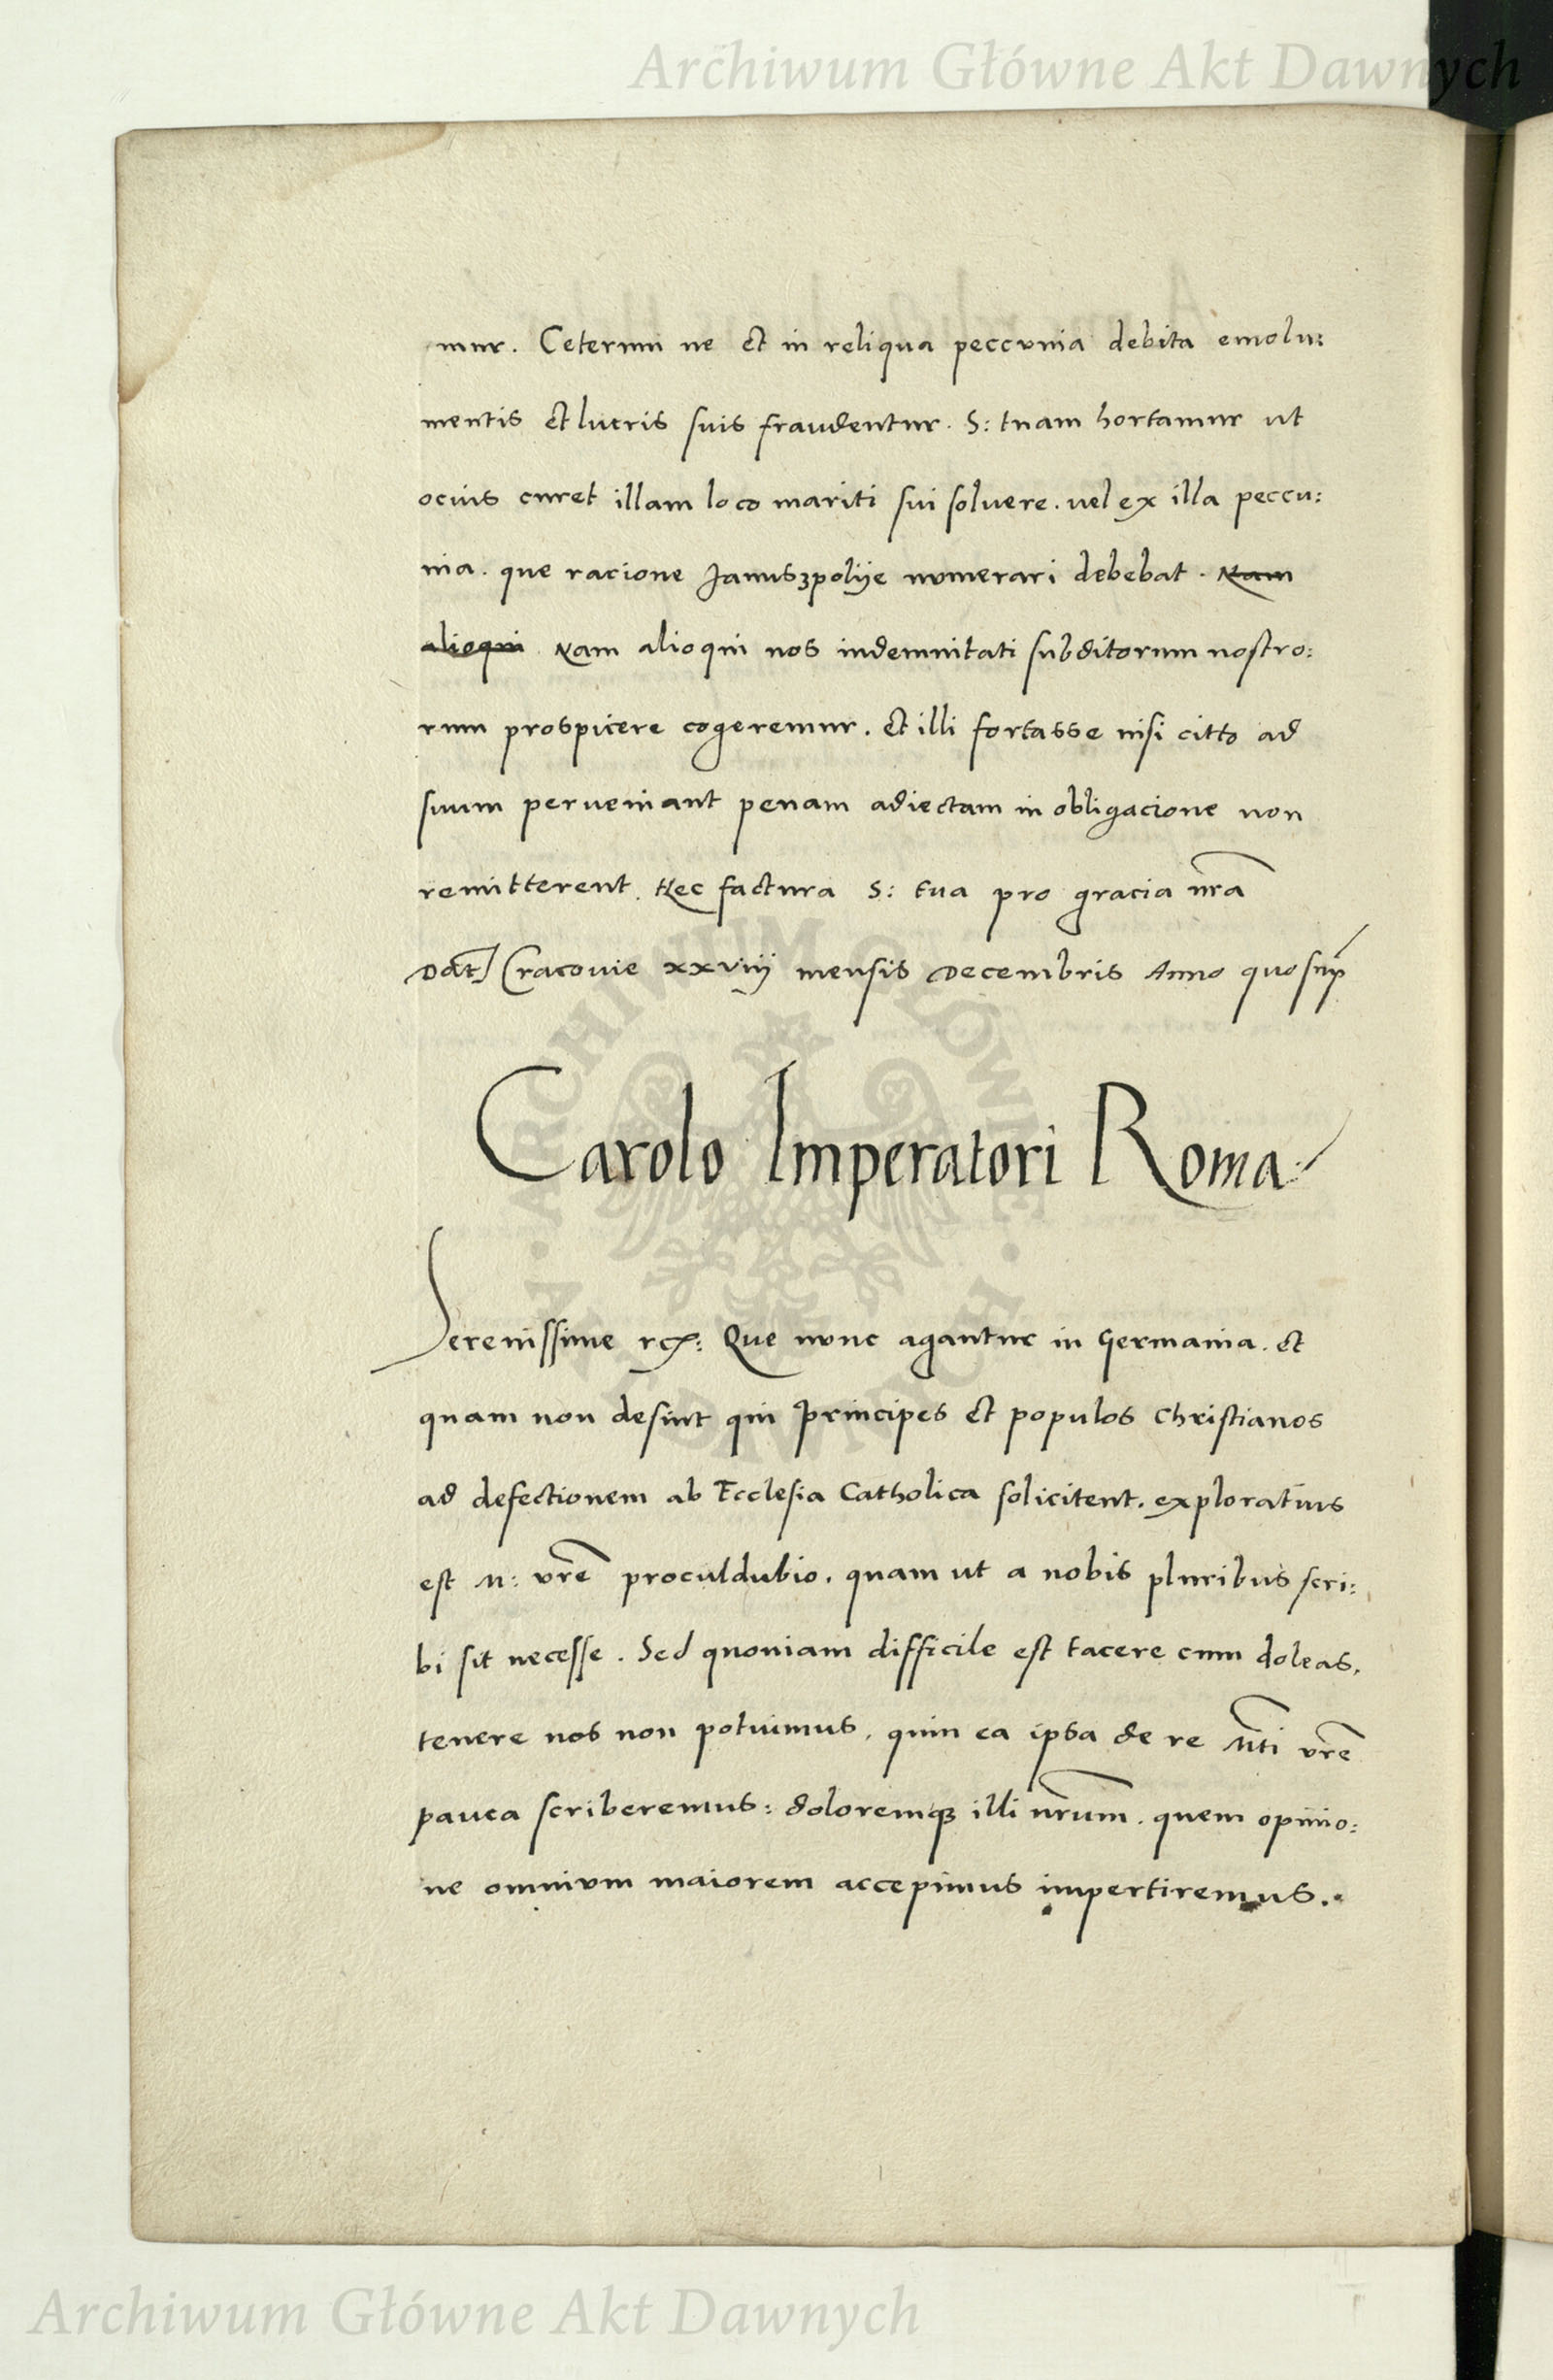 Archiwum Główne Akt Dawnych
mur. Ceterum ne et in reliqua peccunia debita emolu:
mentis et lucris suis fraudentur. S: tuam hortamur ut
ocius curet illam loco mariti sui soluere. uel ex illa peccu:
nia. que racione Januszpolije numerari debebat. Nam
alioqui Nam alioqui nos indemnitati subditorum nostro:
rum prospicere cogeremur. Et illi fortasse nisi citto ad
suum perueniant penam adiectam in obligacione non
remitterent. Hec factura S: tua pro gracia nra
Dat Cracouie xxviij mensis Decembris Anno quo sup
Carolo Imperatori Roma:
Serenissime rex: Que nunc agantur in Germania. et
quam non desint qui principes et populos Christianos
ad defectionem ab Ecclesia Catholica solicitent. exploratius
est M: vre proculdubio. quam ut a nobis pluribus scri:
bi sit necesse. Sed quoniam difficile est tacere cum doleas.
tenere nos non potuimus. quin ea ipsa de re Mti vre
pauca scriberemus: doloremq illi nrum. quem opinio:
ne omnium maiorem accepimus impertiremus.
ARCHIWUM GŁÓWNE AKT DAWNYCH
Archiwum Główne Akt Dawnych